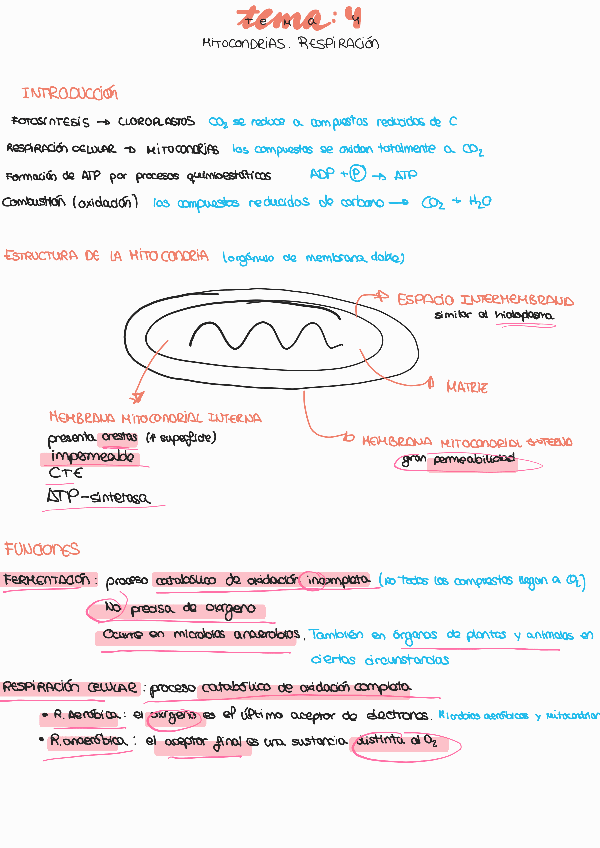 tema: 4
TEMA 4
MITOCONDRIAS. RESPIRACIÓN
INTRODUCCIÓN
FOTOSÍNTESIS → CLOROPLASTOS CO2 se reduce a compuestos reducidos de C
RESPIRACIÓN CELULAR → MITOCONDRIAS los compuestos se oxidan totalmente a CO2
Formación de ATP por procesos quimiosmóticos ADP + P → ATP
Combustión (oxidación) los compuestos reducidos de carbono → CO2 + H2O
ESTRUCTURA DE LA MITOCONDRIA (orgánulo de membrana doble)
ESPACIO INTERMEMBRANA
similar al hialoplasma
MATRIZ
MEMBRANA MITOCONDRIAL INTERNA
presenta crestas (+ superficie)
impermeable
CTE
ATP-sintetasa
MEMBRANA MITOCONDRIAL EXTERNA
gran permeabilidad
FUNCIONES
FERMENTACIÓN: proceso catabólico de oxidación incompleta (no todos los compuestos llegan a O2)
No precisa de oxígeno
Ocurre en microbios anaerobios. También en órganos de plantas y animales en
ciertas circunstancias
RESPIRACIÓN CELULAR: proceso catabólico de oxidación completa
• R. Aeróbica: el oxígeno es el último aceptor de electrones. Microbios aeróbicos y mitocondrias
• R. anaeróbica: el aceptor final es una sustancia distinta al O2